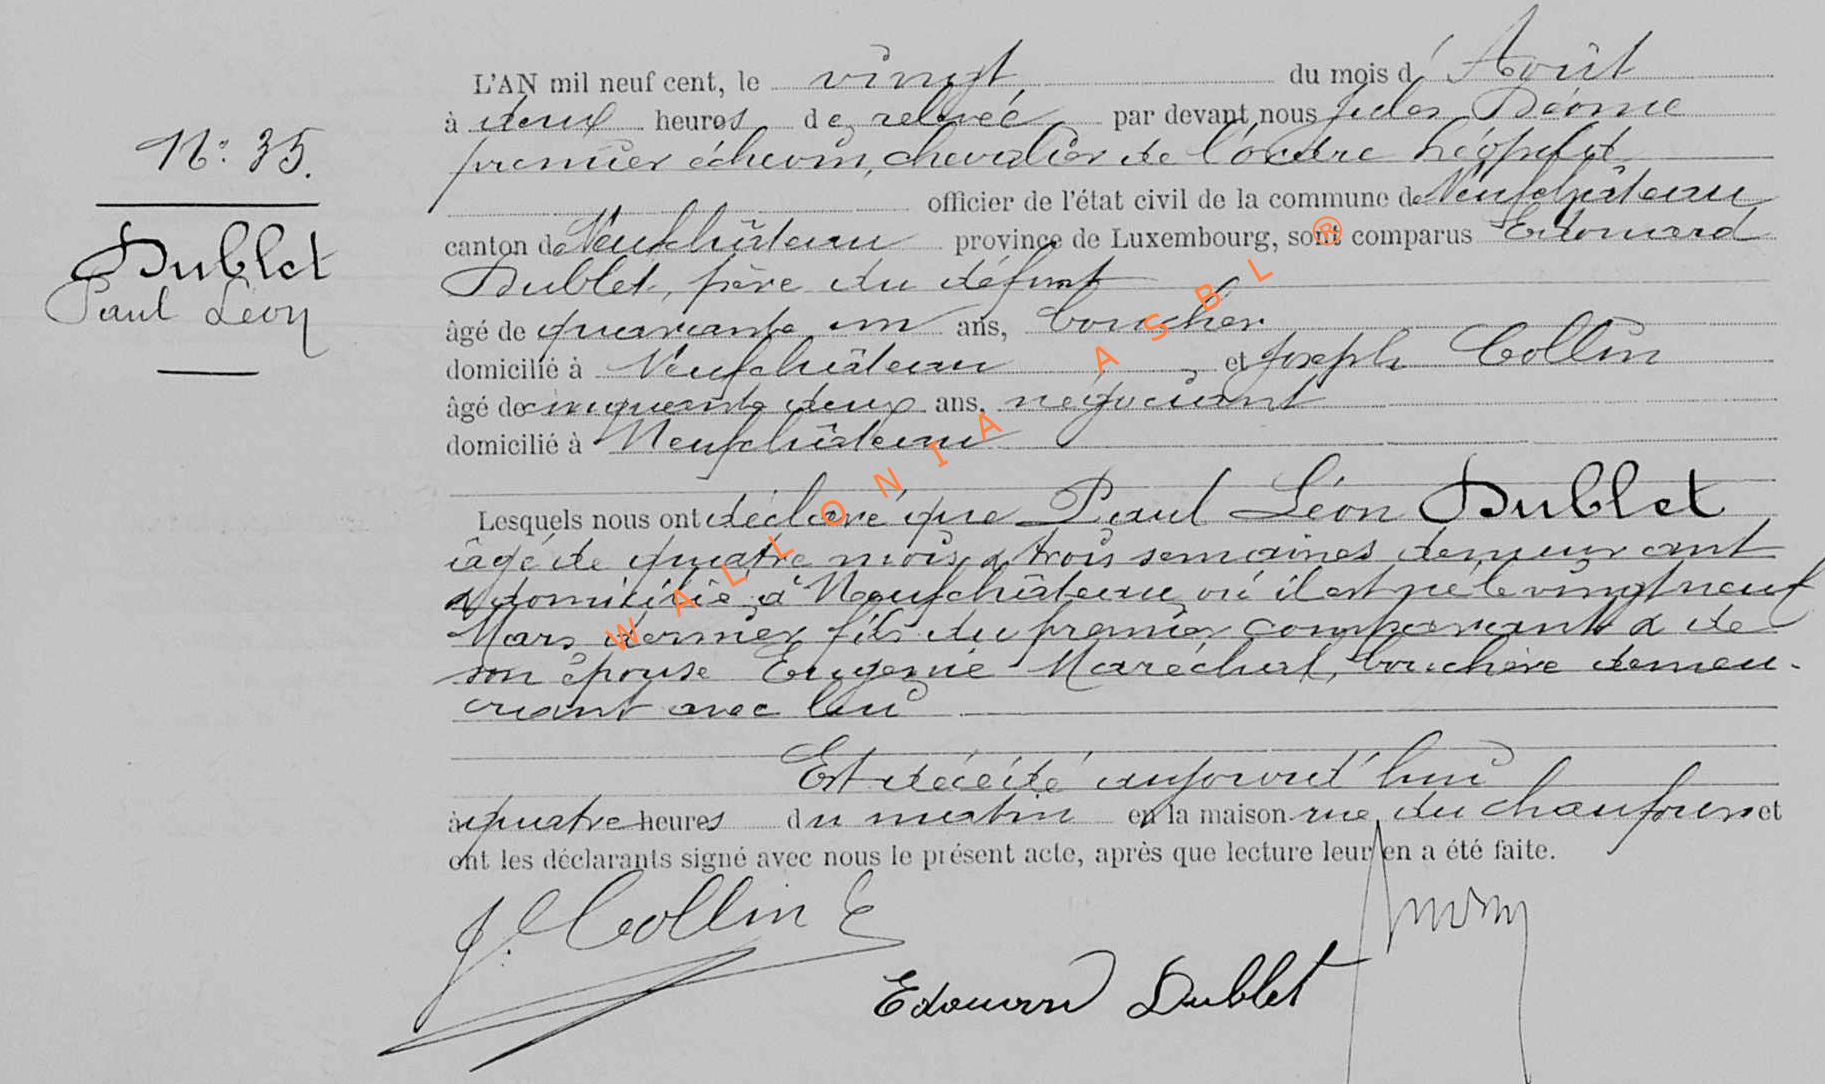 N°: 35.
Dublet
Paul Léon
L'AN mil neuf cent, le vingt du mois d'Août
à deux heures de relevée par devant nous Jules
premier échevin, chevalier de l'ordre Léopold
officier de l'état civil de la commune de Neufchâteau
canton de Neufchâteau province de Luxembourg, sont comparus Edouard
Dublet, père du défunt
âgé de quarante un ans, boucher
domicilié à Neufchâteau et Joseph Collin
âgé de cinquante deux ans, négociant
domicilié à Neufchâteau
Lesquels nous ont déclaré que Paul Léon Dublet
âgé de quatre mois & trois semaines demeurant
& domicilié à Neufchâteau où il est né le vingt neuf
Mars dernier, fils du premier comparant & de
son épouse Eugénie Maréchal, bouchère demeu-
rant avec lui
Est décédé aujourd'hui
à quatre heures du matin en la maison rue du chaufour et
ont les déclarants signé avec nous le présent acte, après que lecture leur en a été faite.
J. Collin
Edouard Dublet
WALLONIA ASBL ®